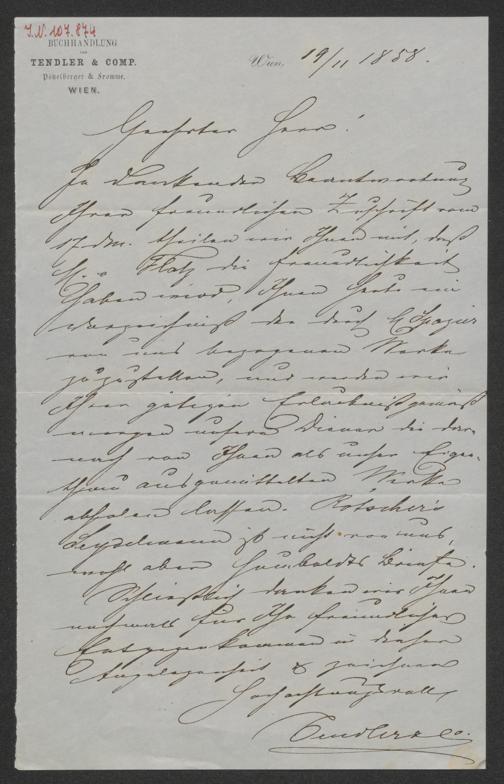 I.N. 107.874
BUCHHANDLUNG
von
TENDLER & COMP.
WIEN.
Wien, 19/11 1858.
Geehrter Herr!
In dankender Beantwortung
Ihrer freundlichen Zuschrift vom
17. dM. theilen wir Ihnen mit, daß
H. Flatz die Freundlichkeit
haben wird, Ihnen heute ein
Verzeichniß der durch H.
von uns bezogenen Werke
zuzustellen, und werden wir
Ihrer gütigen Erlaubniß gemäß
morgen unsern Diener die dar-
nach von Ihnen als unser Eigen-
thum ausgemittelten Werke
abholen lassen. Rötscher's
Seydelmann ist nicht von uns,
wohl aber Humboldts Briefe.
Schließlich danken wir Ihnen
nochmals für Ihr freundliches
Entgegenkommen in dieser
Angelegenheit & zeichnen
Hochachtungsvoll
Tendler & Co.